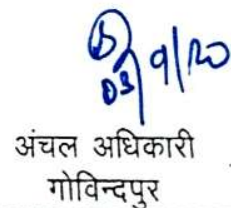 03/9/20
अंचल अधिकारी
गोविन्दपुर